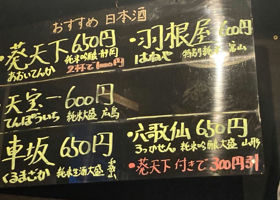 おすすめ 日本酒
・葵天下 650円
あおいてんか 純米吟醸 静岡
2杯で1000円
・羽根屋 600円
はねや 特別純米 富山
天宝一 600円
てんぽういち 純米大盛 広島
車坂 650円
くるまざか 純米生酒大盛
・六歌仙 650円
ろっかせん 純米吟醸大盛 山形
・葵天下 付きで300円引